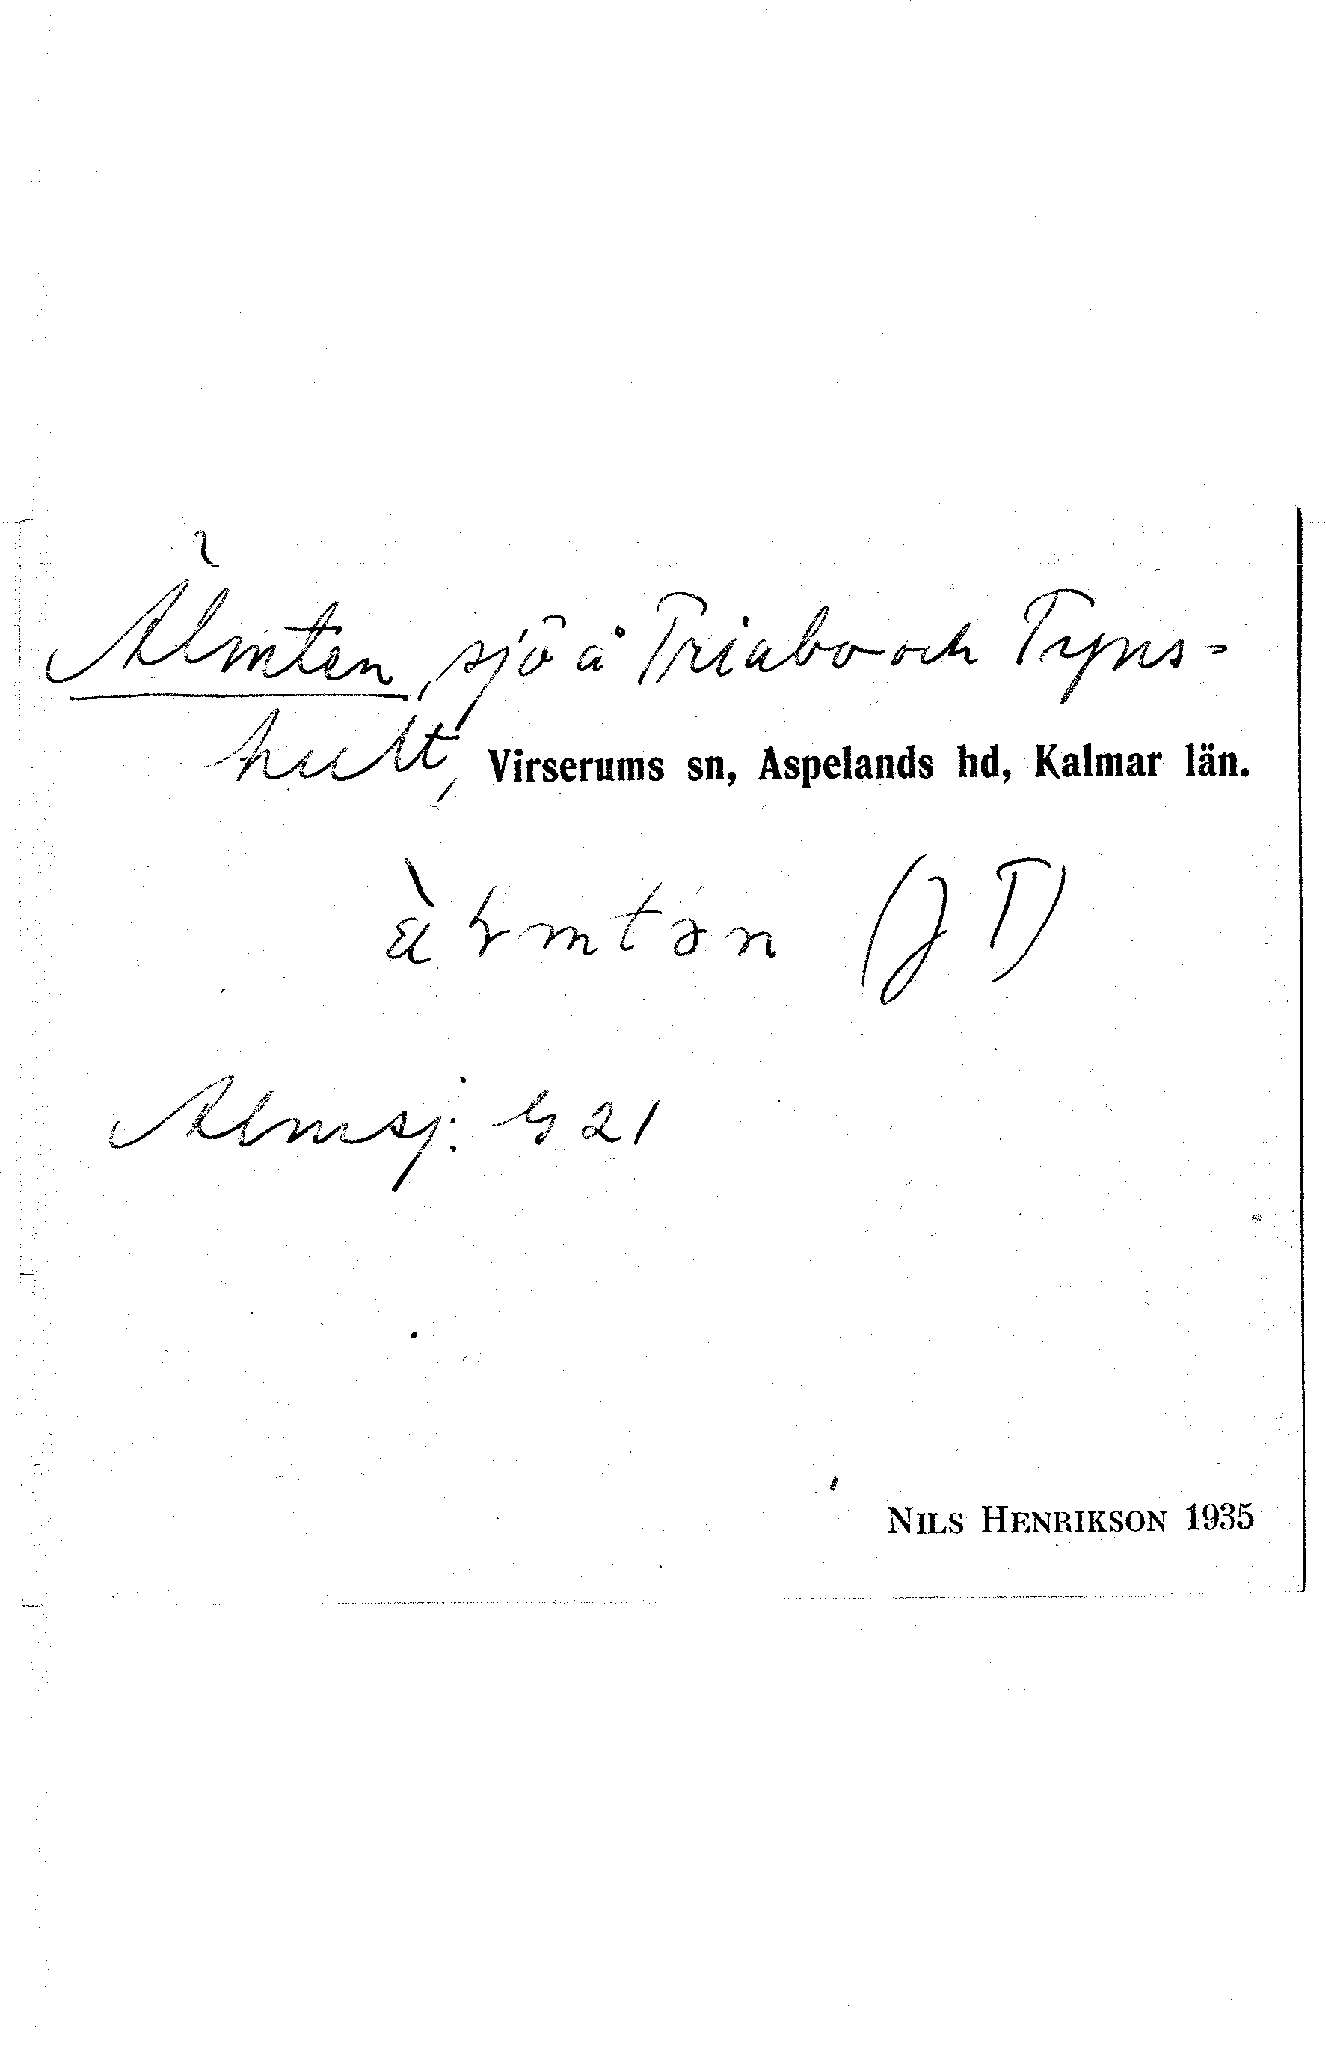 Älmten, sjö å Triabo och Tyns-
hult, Virserums sn, Aspelands hd, Kalmar län.
(J T)
Älmsj. G 21
NILS HENRIKSON 1935